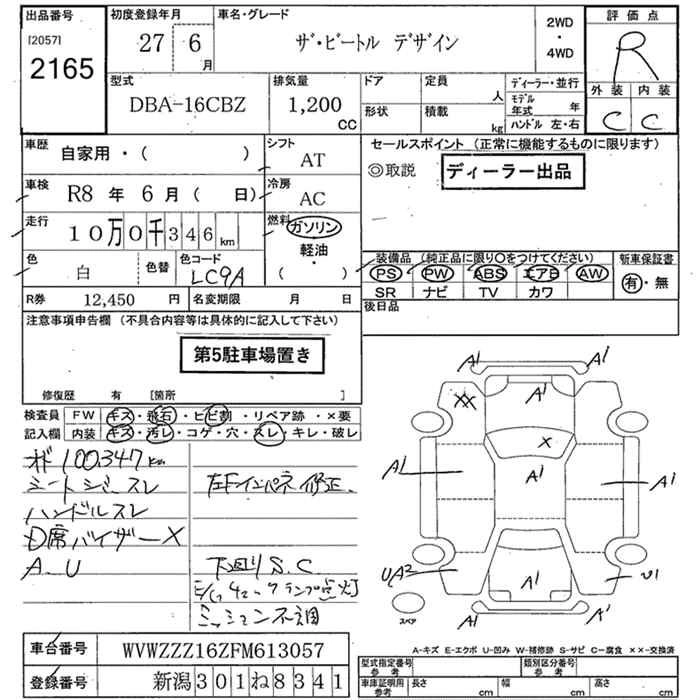 出品番号
[2057]
2165
初度登録年月
27 6月
車名・グレード
ザ・ビートル デザイン
2WD
・
4WD
評価点
R
外装 内装
C C
型式
DBA-16CBZ
排気量
1,200
CC
ドア
定員
人
形状
積載
kg
ディーラー・並行
モデル年式 年
ハンドル 左・右
車歴
自家用・( )
シフト
AT
車検
R8 年 6 月 ( 日)
冷房
AC
走行
10万0千346km
燃料
ガソリン
軽油
・
( )
色
白
色替
色コード
LC9A
R券 12,450 円
名変期限 月 日
セールスポイント (正常に機能するものに限ります)
◎取説
ディーラー出品
装備品 (純正品に限り〇をつけてください)
PS PW ABS エアB AW
SR ナビ TV カワ
新車保証書
有・無
後日品
注意事項申告欄 (不具合内容等は具体的に記入して下さい)
第5駐車場置き
修復歴 有 [箇所 ]
検査員 FW キズ・飛石・ヒビ割・リペア跡・×要
記入欄 内装 キズ・汚レ・コゲ・穴・スレ・キレ・破レ
100347km
シートシワ・スレ
ハンドルスレ
D席バイザーX
A、U
左Fインパネ修正
下回りS、C
E/Gチェックランプ点灯
ミッション不調
A1 A1
XX A1
X
A1 A1 A1
UA2 A1 U1
A1 A1
スペア
A-キズ E-エクボ U-凹み W-補修跡 S-サビ C-腐食 ××-交換済
車台番号 WVWZZZ16ZFM613057
登録番号 新潟301ね8341
型式指定番号
参考
類別区分番号
参考
車庫証明用
参考
長さ cm
幅 cm
高さ cm